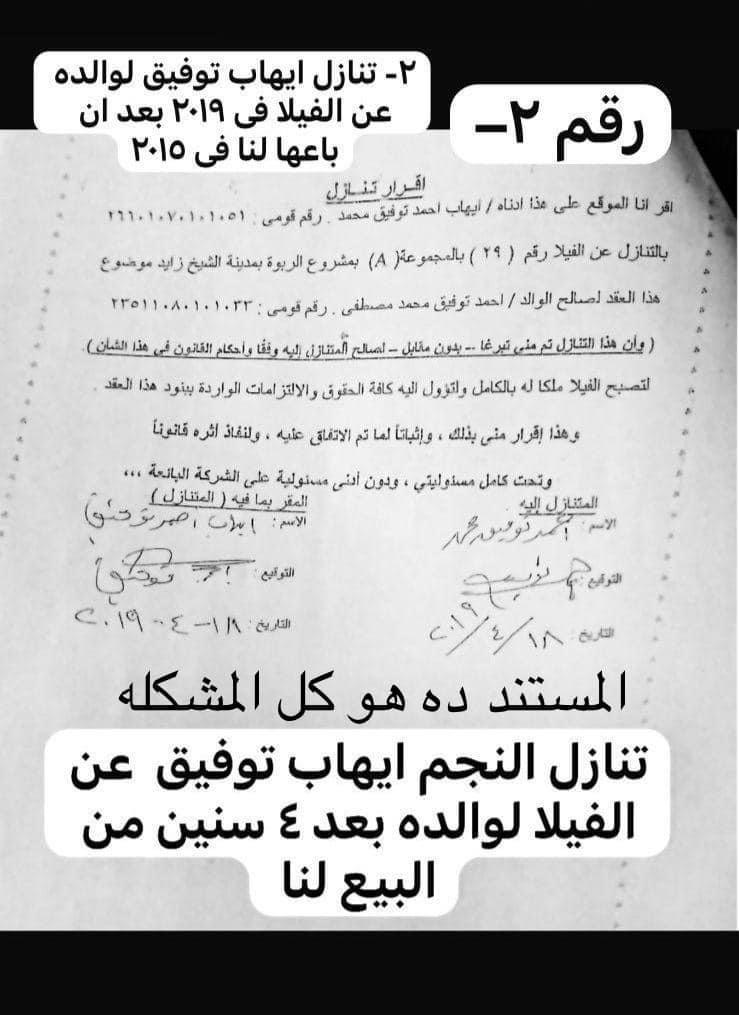 ٢- تنازل ايهاب توفيق لوالده
عن الفيلا فى ٢٠١٩ بعد ان
باعها لنا فى ٢٠١٥
رقم ٢-
اقرار تنازل
اقر انا الموقع على هذا ادناه / ايهاب احمد توفيق محمد . رقم قومى : ٢٦٦٠١٠٧٠١٠١٠٥١
بالتنازل عن الفيلا رقم ( ٢٩ ) بالمجموعة( A ) بمشروع الربوة بمدينة الشيخ زايد موضوع
هذا العقد لصالح الوالد / احمد توفيق محمد مصطفى . رقم قومى : ٢٣٥١١٠٨٠١٠١٠٣٣
( وأن هذا التنازل تم منى تبرعا -- بدون مقابل – لصالح المتنازل إليه وفقا وأحكام القانون فى هذا الشأن ).
لتصبح الفيلا ملكا له بالكامل ولتؤول اليه كافة الحقوق والالتزامات الواردة ببنود هذا العقد .
وهذا إقرار منى بذلك ، وإثباتاً لما تم الاتفاق عليه ، ولنفاذ أثره قانوناً
وتحت كامل مسئوليتي ، ودون أدنى مسئولية على الشركة البائعة ،،،
المتنازل إليه
المقر بما فيه ( المتنازل )
الاسم : احمد توفيق محمد
الاسم : ايهاب احمد توفيق
التوقيع :
التوقيع : توفيق
التاريخ : ١٨/ ٤/ ٢٠١٩
التاريخ : ١٨-٤-٢٠١٩
المستند ده هو كل المشكله
تنازل النجم ايهاب توفيق عن
الفيلا لوالده بعد ٤ سنين من
البيع لنا